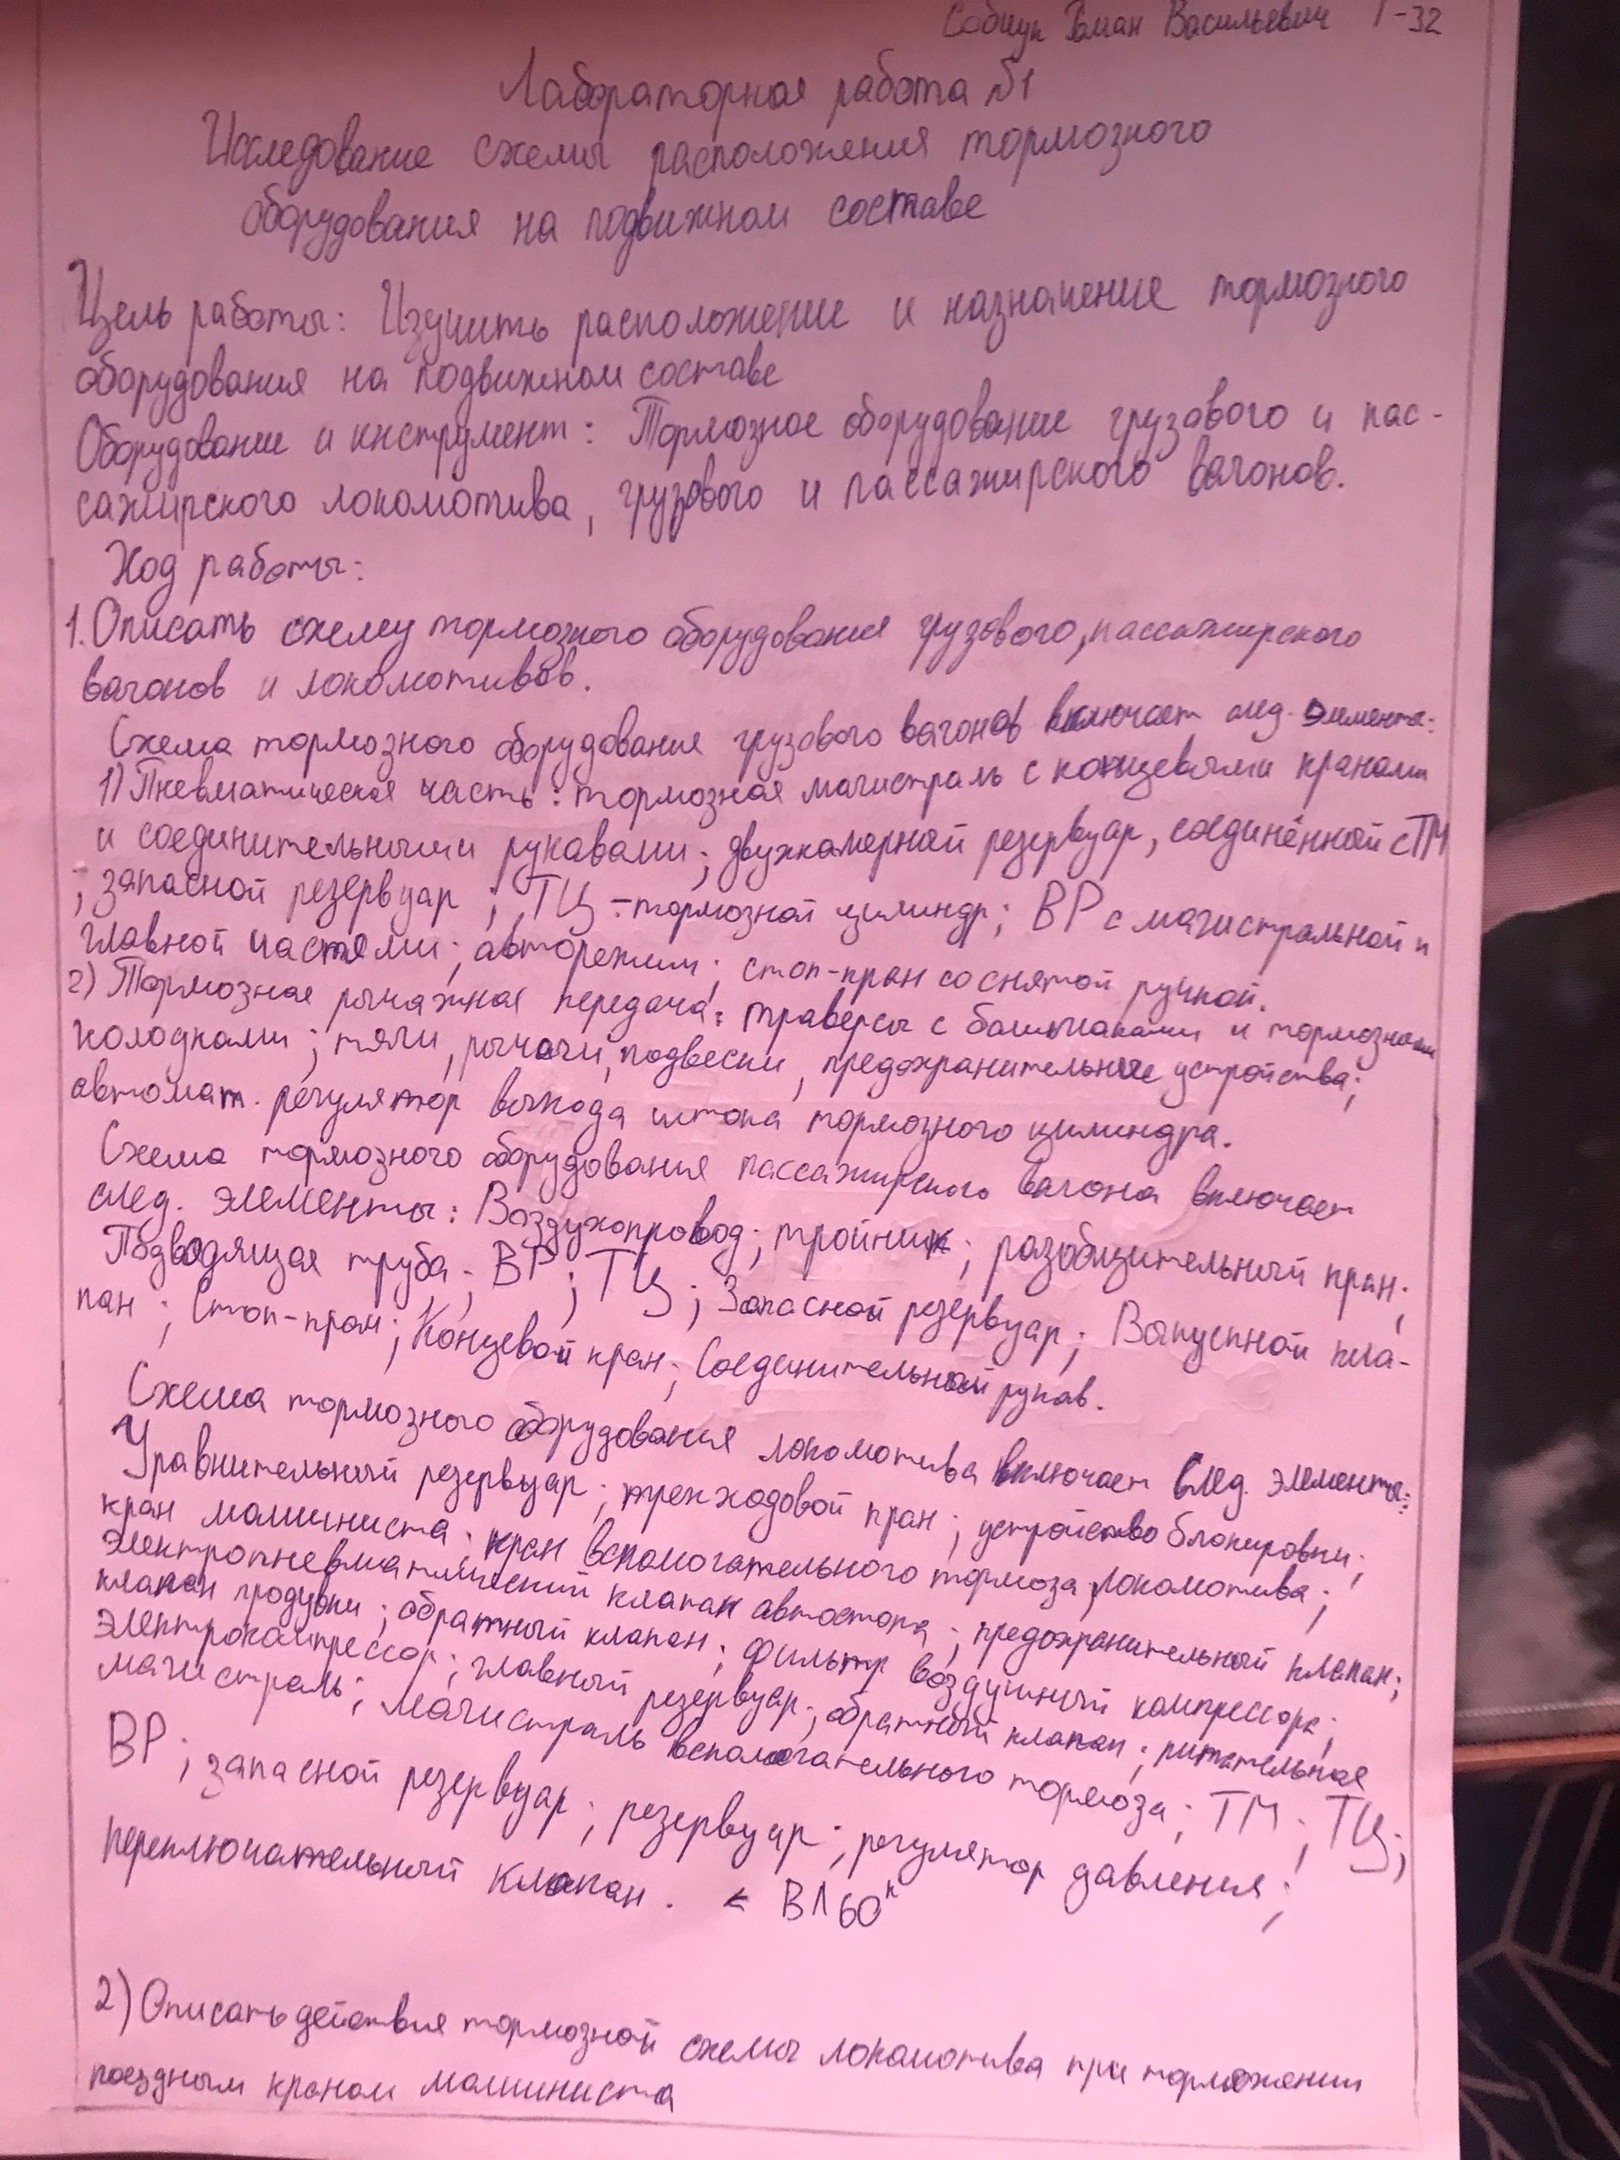 Роман Васильевич Т-32
Лабораторная работа №1
Исследование схемы расположения тормозного
оборудования на подвижном составе
Цель работы: Изучить расположение и назначение тормозного
оборудования на подвижном составе
Оборудование и инструмент: Тормозное оборудование грузового и пас-
сажирского локомотива, грузового и пассажирского вагонов.
Ход работы:
1. Описать схему тормозного оборудования грузового, пассажирского
вагонов и локомотивов.
Схема тормозного оборудования грузового вагонов включает след. элементы:
1) Пневматическая часть: тормозная магистраль с концевыми кранами
и соединительными рукавами; двухкамерной резервуар, соединённой с ТМ
; запасной резервуар; ТЦ - тормозной цилиндр; ВР с магистральной и
главной частями; авторежим; стоп-кран со снятой ручкой.
2) Тормозная рычажная передача: траверсы с башмаками и тормозными
колодками; тяги, рычаги, подвески, предохранительные устройства;
автомат. регулятор выхода штока тормозного цилиндра.
Схема тормозного оборудования пассажирского вагона включает
след. элементы: Воздухопровод; тройник; разобщительный кран;
Подводящая труба; ВР; ТЦ; Запасной резервуар; Выпускной кла-
пан; Стоп-кран; Концевой кран; Соединительный рукав.
Схема тормозного оборудования локомотива включает след. элементы:
Уравнительный резервуар; трехходовой кран; устройство блокировки;
кран машиниста; кран вспомогательного тормоза локомотива;
электропневматический клапан автостопа; предохранительный клапан;
клапан продувки; обратный клапан; фильтр воздушный компрессора;
электрокомпрессор; главный резервуар; обратный клапан; питательная
магистраль; магистраль вспомогательного тормоза; ТМ; ТЦ;
ВР; запасной резервуар; резервуар; регулятор давления;
переключательный клапан. < ВЛ60к
2) Описать действия тормозной схемы локомотива при торможении
поездным краном машиниста